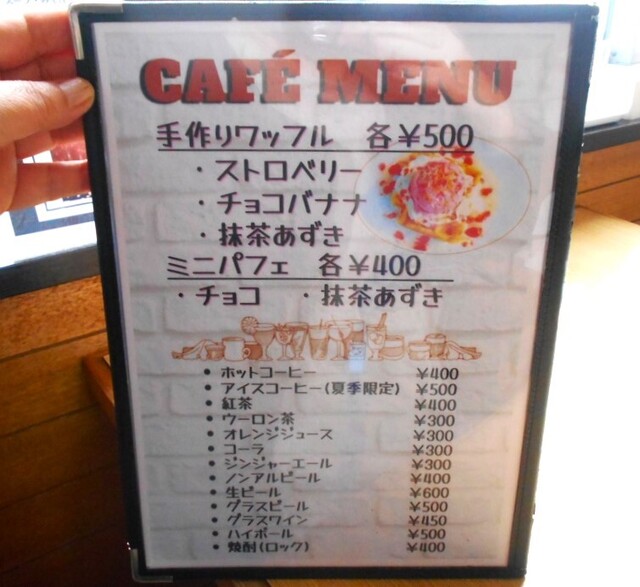 CAFÉ MENU
手作りワッフル 各￥500
・ストロベリー
・チョコバナナ
・抹茶あずき
ミニパフェ 各￥400
・チョコ ・抹茶あずき
• ホットコーヒー ￥400
• アイスコーヒー(夏季限定) ￥500
• 紅茶 ￥400
• ウーロン茶 ￥300
• オレンジジュース ￥300
• コーラ ￥300
• ジンジャーエール ￥300
• ノンアルビール ￥400
• 生ビール ￥600
• グラスビール ￥500
• グラスワイン ￥450
• ハイボール ￥500
• 焼酎(ロック) ￥400